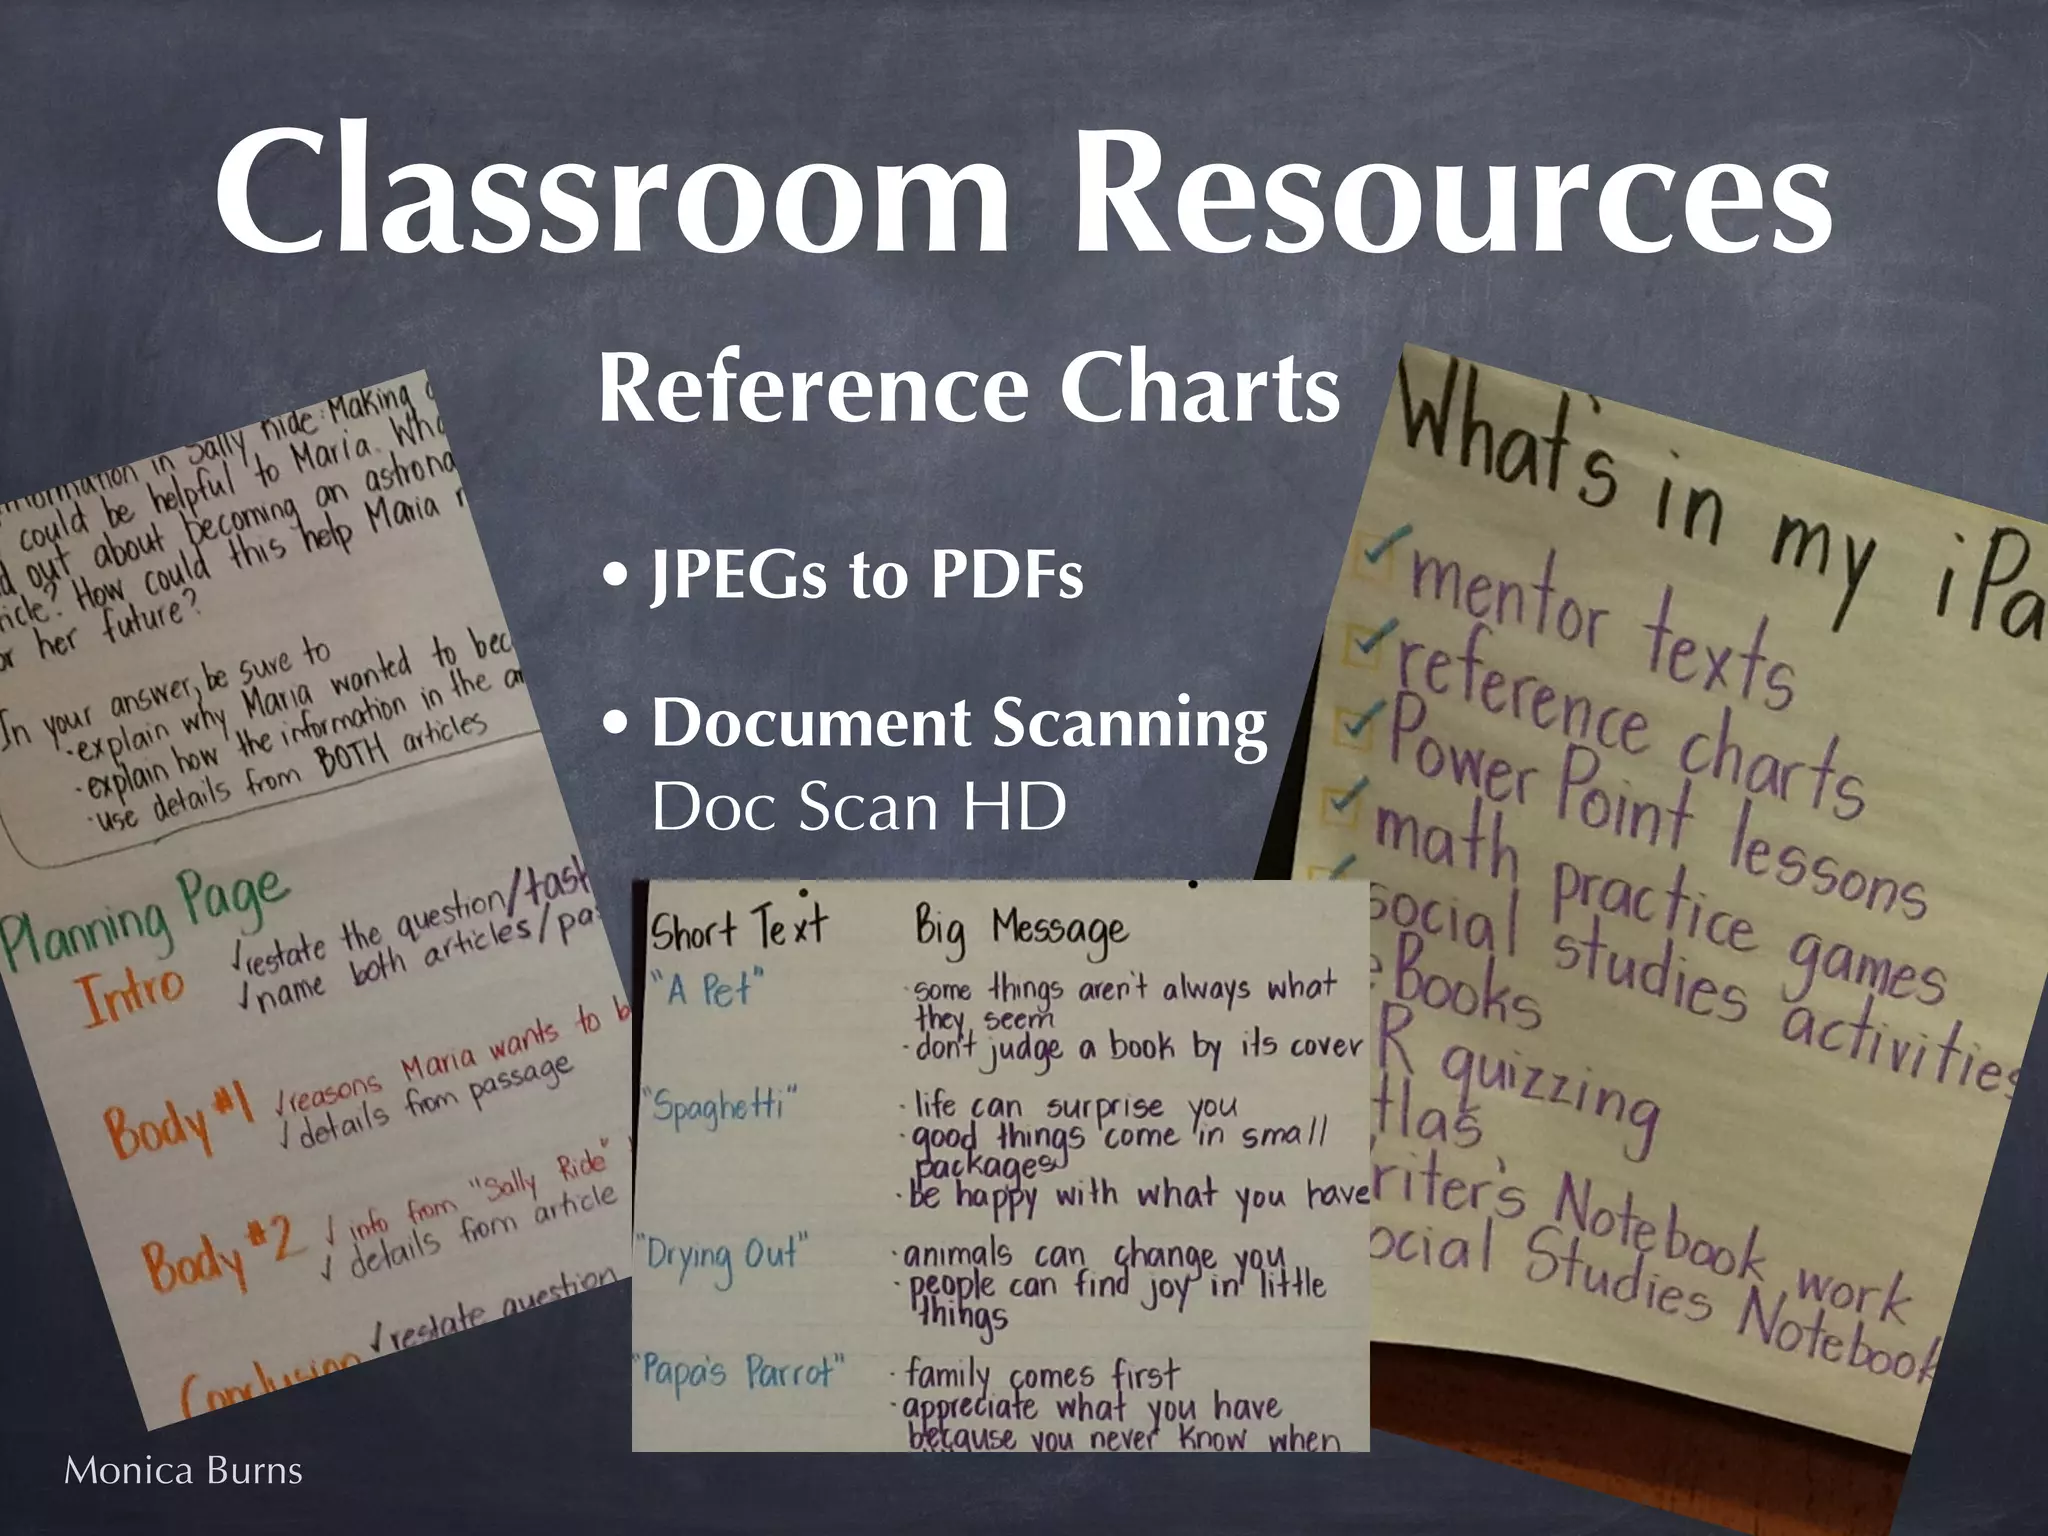 Classroom Resources
Reference Charts
• JPEGs to PDFs
• Document Scanning
Doc Scan HD
information in Sally Ride: Making
could be helpful to Maria.
out about becoming an
How could this help Maria
her future?
In your answer, be sure to
·explain why Maria wanted to
·explain how the information in the
·use details from BOTH articles
Planning Page
Intro
√restate the question/task
√name both articles/
Body #1
√reasons Maria wants to
√details from passage
Body #2
√ info from "Sally Ride"
√ details from article
Conclusion
√restate question
Short Text Big Message
"A Pet" ·some things aren't always what
they seem
·don't judge a book by its cover
"Spaghetti" ·life can surprise you
·good things come in small
packages
·be happy with what you have
"Drying Out" ·animals can change you
·people can find joy in little
things
"Papa's Parrot" ·family comes first
·appreciate what you have
because you never know when
What's in my iPa
✓mentor texts
✓reference charts
✓PowerPoint lessons
✓math practice games
✓social studies activities
eBooks
R quizzing
tlas
riter's Notebook work
ocial Studies Notebook
Monica Burns